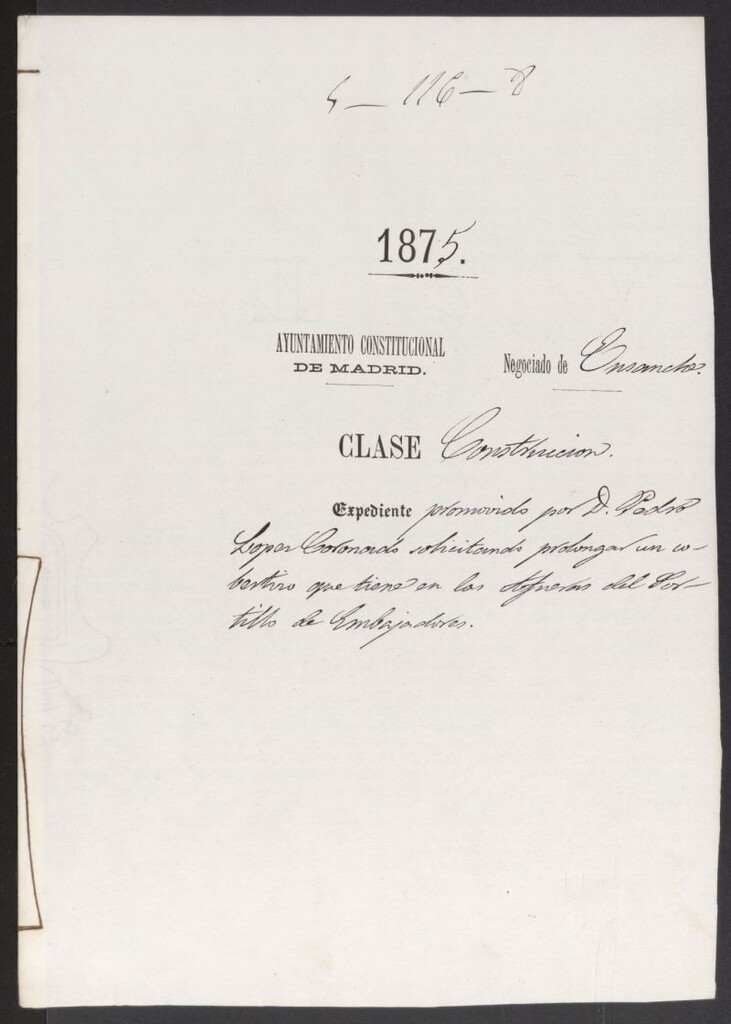 5 — 116 — 8
1875.
AYUNTAMIENTO CONSTITUCIONAL
DE MADRID.
Negociado de Ensanche.
CLASE Construccion.
Expediente promovido por D. Pedro
Lopez Coronado solicitando prolongar un co-
bertizo que tiene en las Afueras del Por-
tillo de Embajadores.